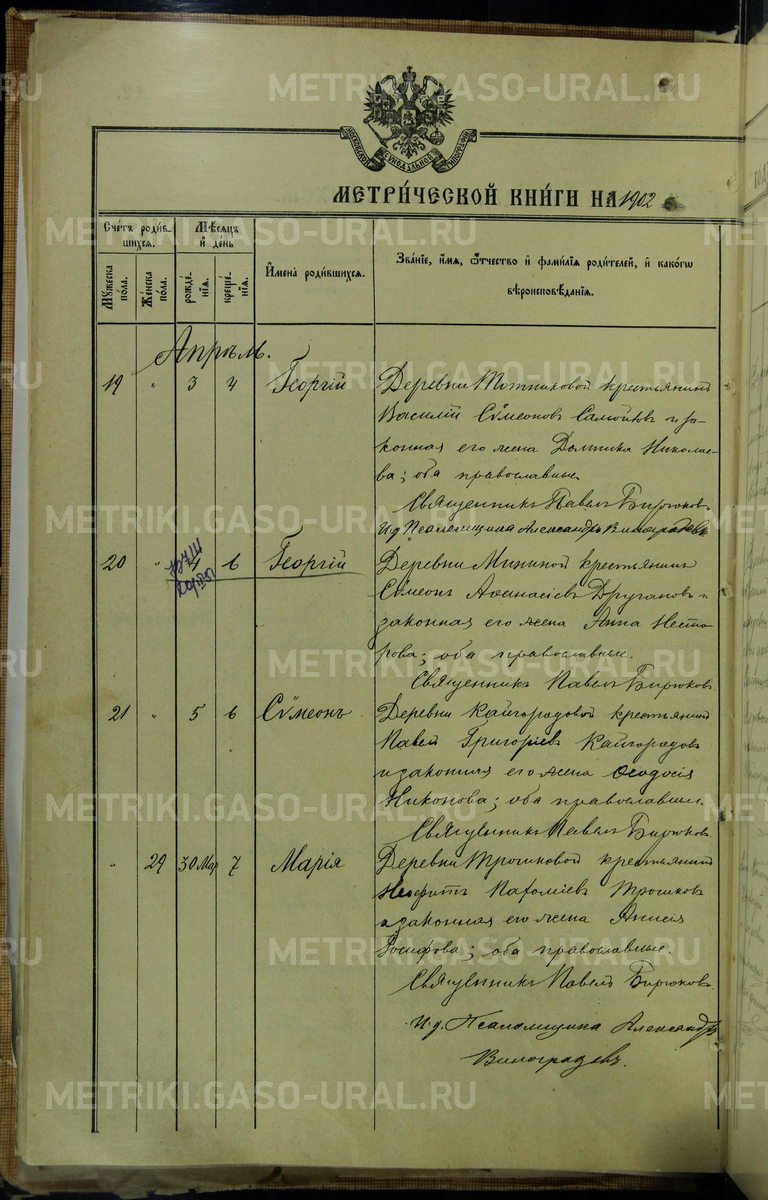 МОСКОВСКОЙ СИНОДАЛЬНОЙ ТИПОГРАФІИ
МЕТРИ́ЧЕСКОЙ КНИ́ГИ НА 1902
Сче́тъ роди́вшихся.
Мѣ́сяцъ и҆ де́нь
Мꙋ́жеска по́ла.
Же́нска по́ла.
рожде́нїѧ.
креще́нїѧ.
И҆мена̀ роди́вшихся.
Зва́нїе, и҆́мѧ, ѻ҆́тчество и҆ фами́лїѧ роди́телей, и҆ како́гѡ
вѣроисповѣ́данїѧ.
Апрѣль.
19 " 3 4 Георгій Деревни крестьянинъ
Василій Сѵмеоновъ Самойловъ и за-
конная его жена Домника Николае-
ва; оба православные.
Священникъ Павелъ Бирюковъ
И.д. Псаломщика Александръ Виноградовъ
20 " 6 Георгій Деревни Мининой крестьянинъ
Сѵмеонъ Аѳанасіевъ Другановъ и
законная его жена Анна Несто-
рова; оба православные.
Священникъ Павелъ Бирюковъ
21 " 5 6 Сѵмеонъ Деревни Кайгородовой крестьянинъ
Павелъ Григоріевъ Кайгородовъ
и законная его жена Ѳеодосія
Никонова; оба православные.
Священникъ Павелъ Бирюковъ.
" 29 30 Мар 7 Марія Деревни Трошковой крестьянинъ
Пахоміевъ Трошковъ
и законная его жена Анисія
Іосифова; оба православные.
Священникъ Павелъ Бирюковъ.
И.д. Псаломщика Александръ
Виноградовъ.
METRIKI.GASO-URAL.RU